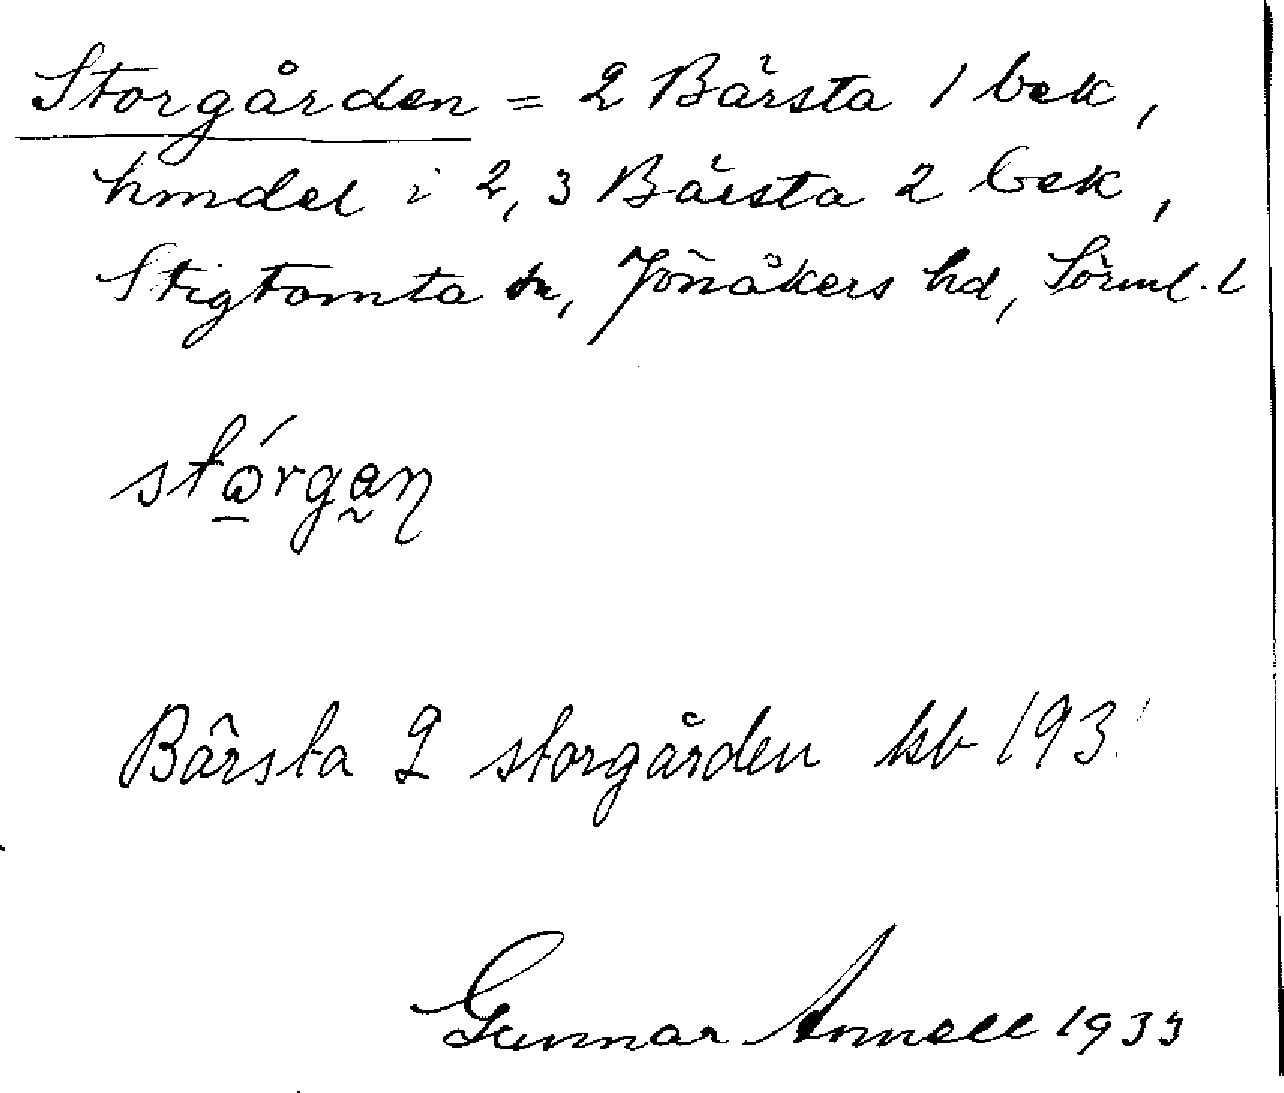 Storgården = 2 Bärsta 1 bek,
hmdel i 2, 3 Bärsta 2 bek,
Stigtomta sn, Jönåkers hd, Sörml. l
stǫ́rgan̥
Bärsta 2 storgården kb 193
Gunnar Annell 1935